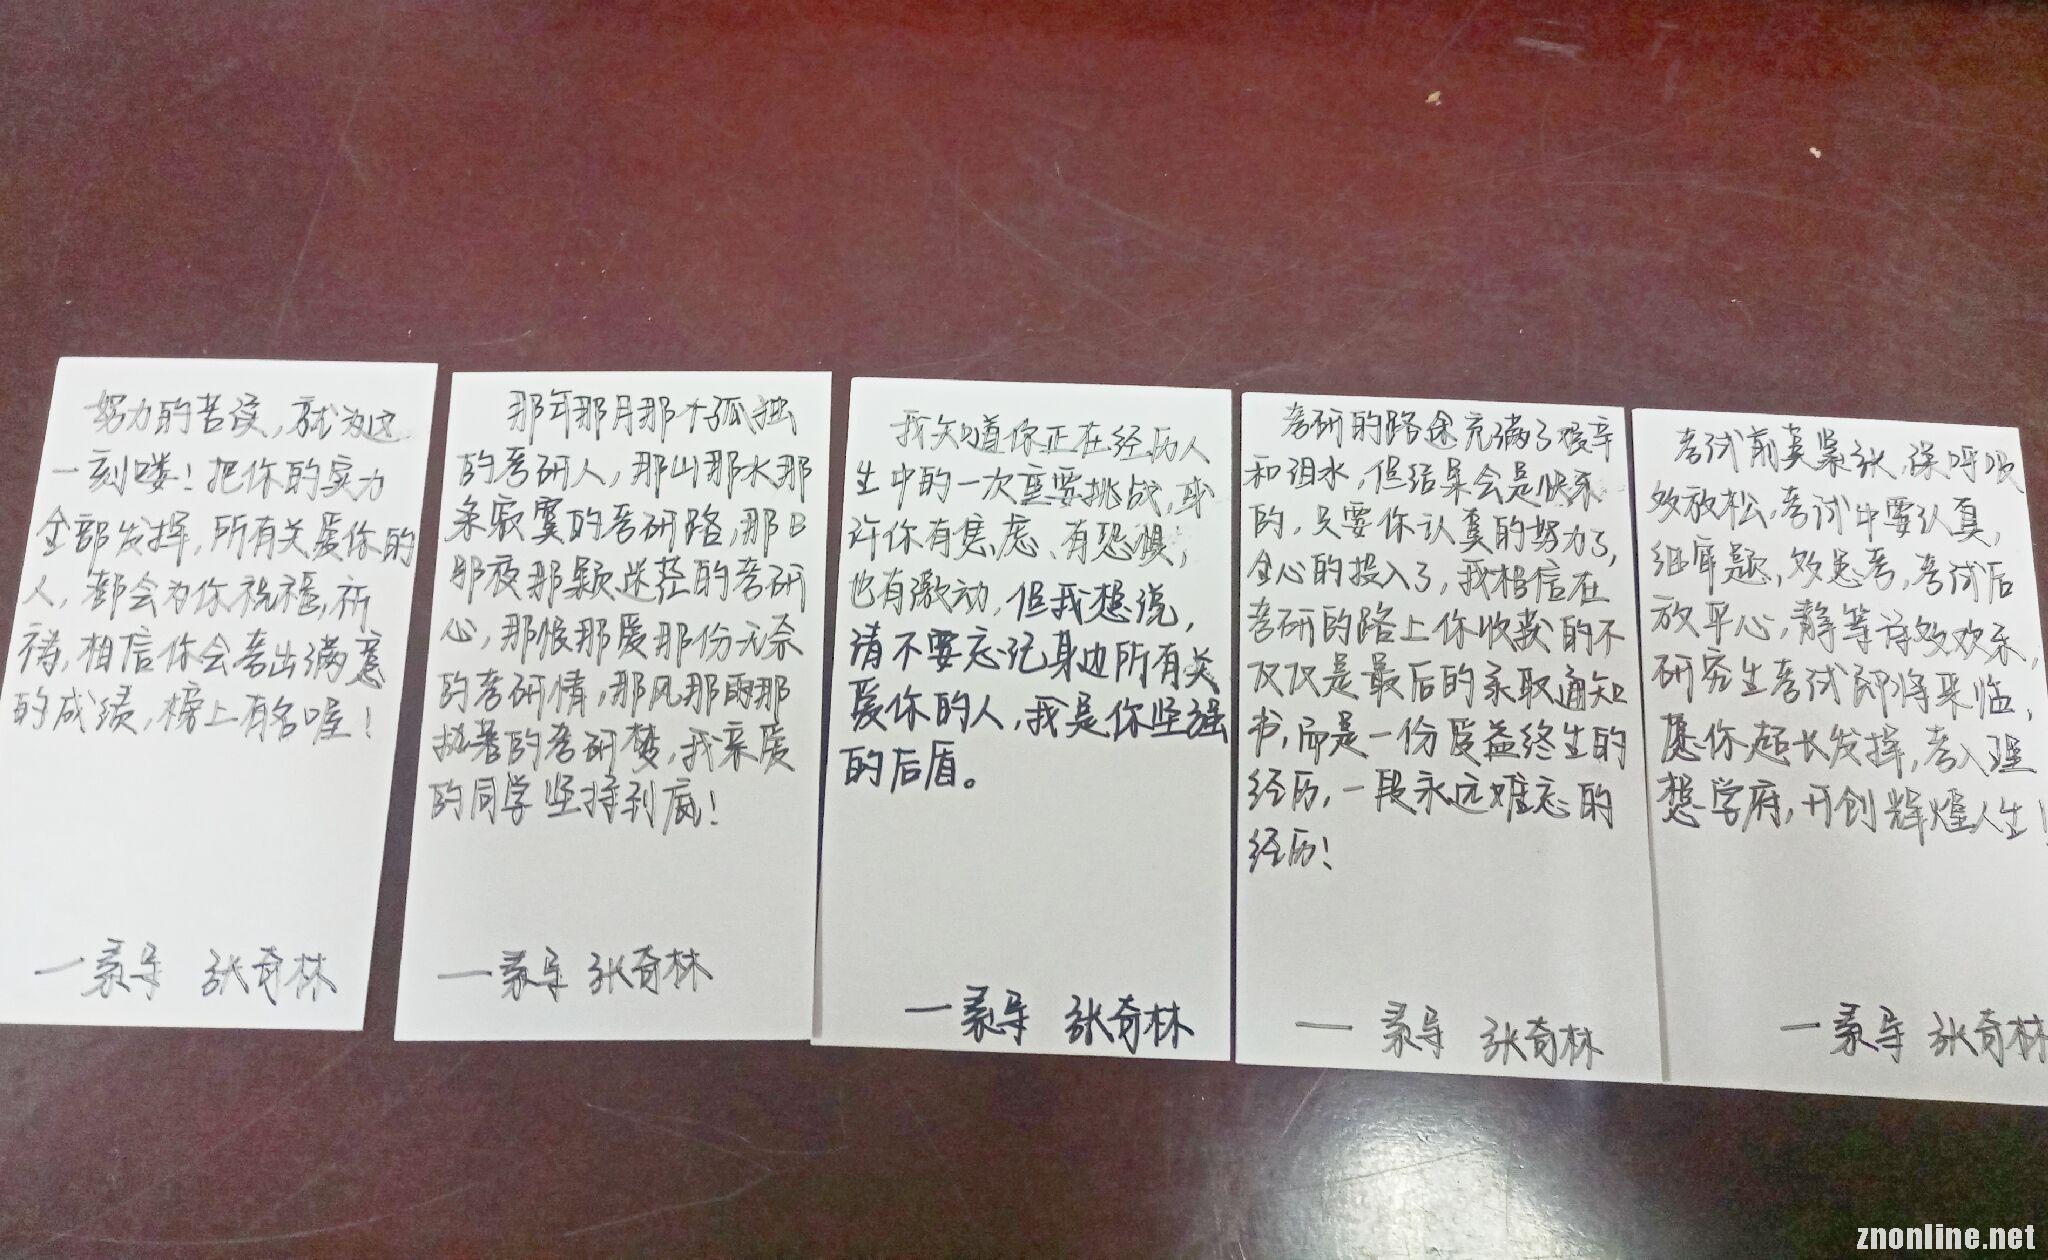 努力的苦读，就为这
一刻喽！把你的实力
全部发挥，所有关爱你的
人，都会为你祝福，祈
祷，相信你会考出满意
的成绩，榜上有名喔！
一 张奇林
那年那月那个孤独
的考研人，那山那水那
条寂寞的考研路，那日
那夜那颗迷茫的考研
心，那恨那爱那份无奈
的考研情，那风那雨那
执着的考研梦，我亲爱
的同学坚持到底！
一 张奇林
我知道你正在经历人
生中的一次重要挑战，或
许你有焦虑、有恐惧，
也有激动，但我想说，
请不要忘记身边所有关
爱你的人，我是你坚强
的后盾。
一 张奇林
考研的路途充满了艰辛
和泪水，但结果会是快乐
的，只要你认真的努力了，
全心的投入了，我相信在
考研的路上你收获的不
仅仅是最后的录取通知
书，而是一份受益终生的
经历，一段永远难忘的
经历！
一 张奇林
考试前莫紧张，深呼吸
效放松，考试中要认真，
细审题，效思考，考试后
放平心，静等待效欢乐，
研究生考试即将来临，
愿你超长发挥，考入理
想学府，开创辉煌人生！
一 张奇林
znonline.net